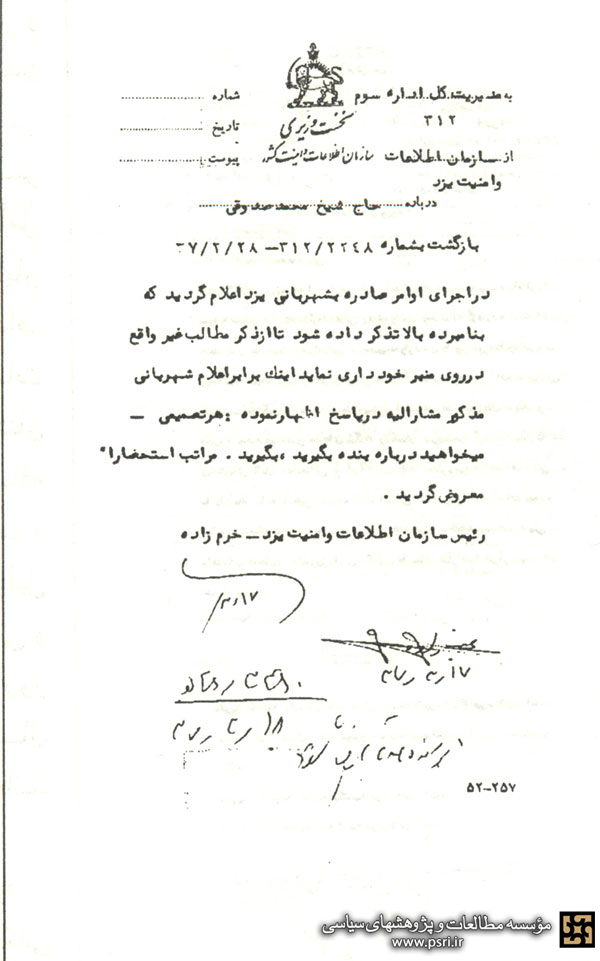 به مدیریت کل اداره سوم
۳۱۲
از سازمان اطلاعات
وامنیت یزد
نخست وزیری
سازمان اطلاعات و امنیت کشور
شماره
تاریخ
پیوست
درباره حاج شیخ محمد صدوقی
بازگشت بشماره ۳۱۲/۲۲۴۸ـ ۳۷/۲/۲۸
دراجرای اوامر صادره بشهربانی یزد اعلام گردید که
بنامبرده بالا تذکر داده شود تا ازذکر مطالب غیر واقع
درروی منبر خود داری نماید اینك برابر اعلام شهربانی
مذکور مشارالیه درپاسخ اظهارنموده :هرتصمیمی ـ
میخواهید درباره بنده بگیرید ،بگیرید . مراتب استحضارا"
معروض گردید .
رئیس سازمان اطلاعات وامنیت یزد ـ خرم زاده
۵۲-۲۵۷
مؤسسه مطالعات و پژوهشهای سیاسی
www.psri.ir